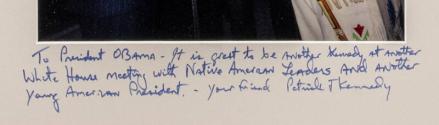 To President OBAMA - It is great to be another Kennedy at another
White House meeting with Native American Leaders AND another
Young American President. - your friend Patrick J Kennedy